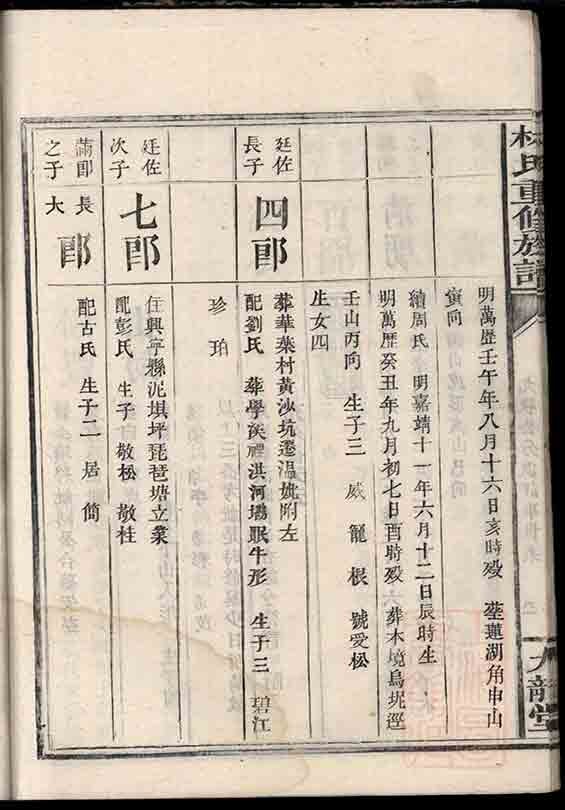 林氏重修族譜
九龍堂
明萬歷壬午年八月十六日亥時歿 塟蓮湖角申山
寅向
續周氏 明嘉靖十一年六月十二日辰時生
明萬歷癸丑年九月初七日酉時歿 葬木境烏坭逕
壬山丙向 生子三 威 寵 根 號愛松
生女四
廷佐
長子
四郎
葬華葉村黃沙坑遷溫妣附左
配劉氏 葬學溪裡洪河壩眠牛形 生子三 碧江
珍 珀
廷佐
次子
七郎
住興寧縣泥堪坪琵琶塘立業
配彭氏 生子 敬松 敬桂
長
之子
大郎
配古氏 生子二 居 簡